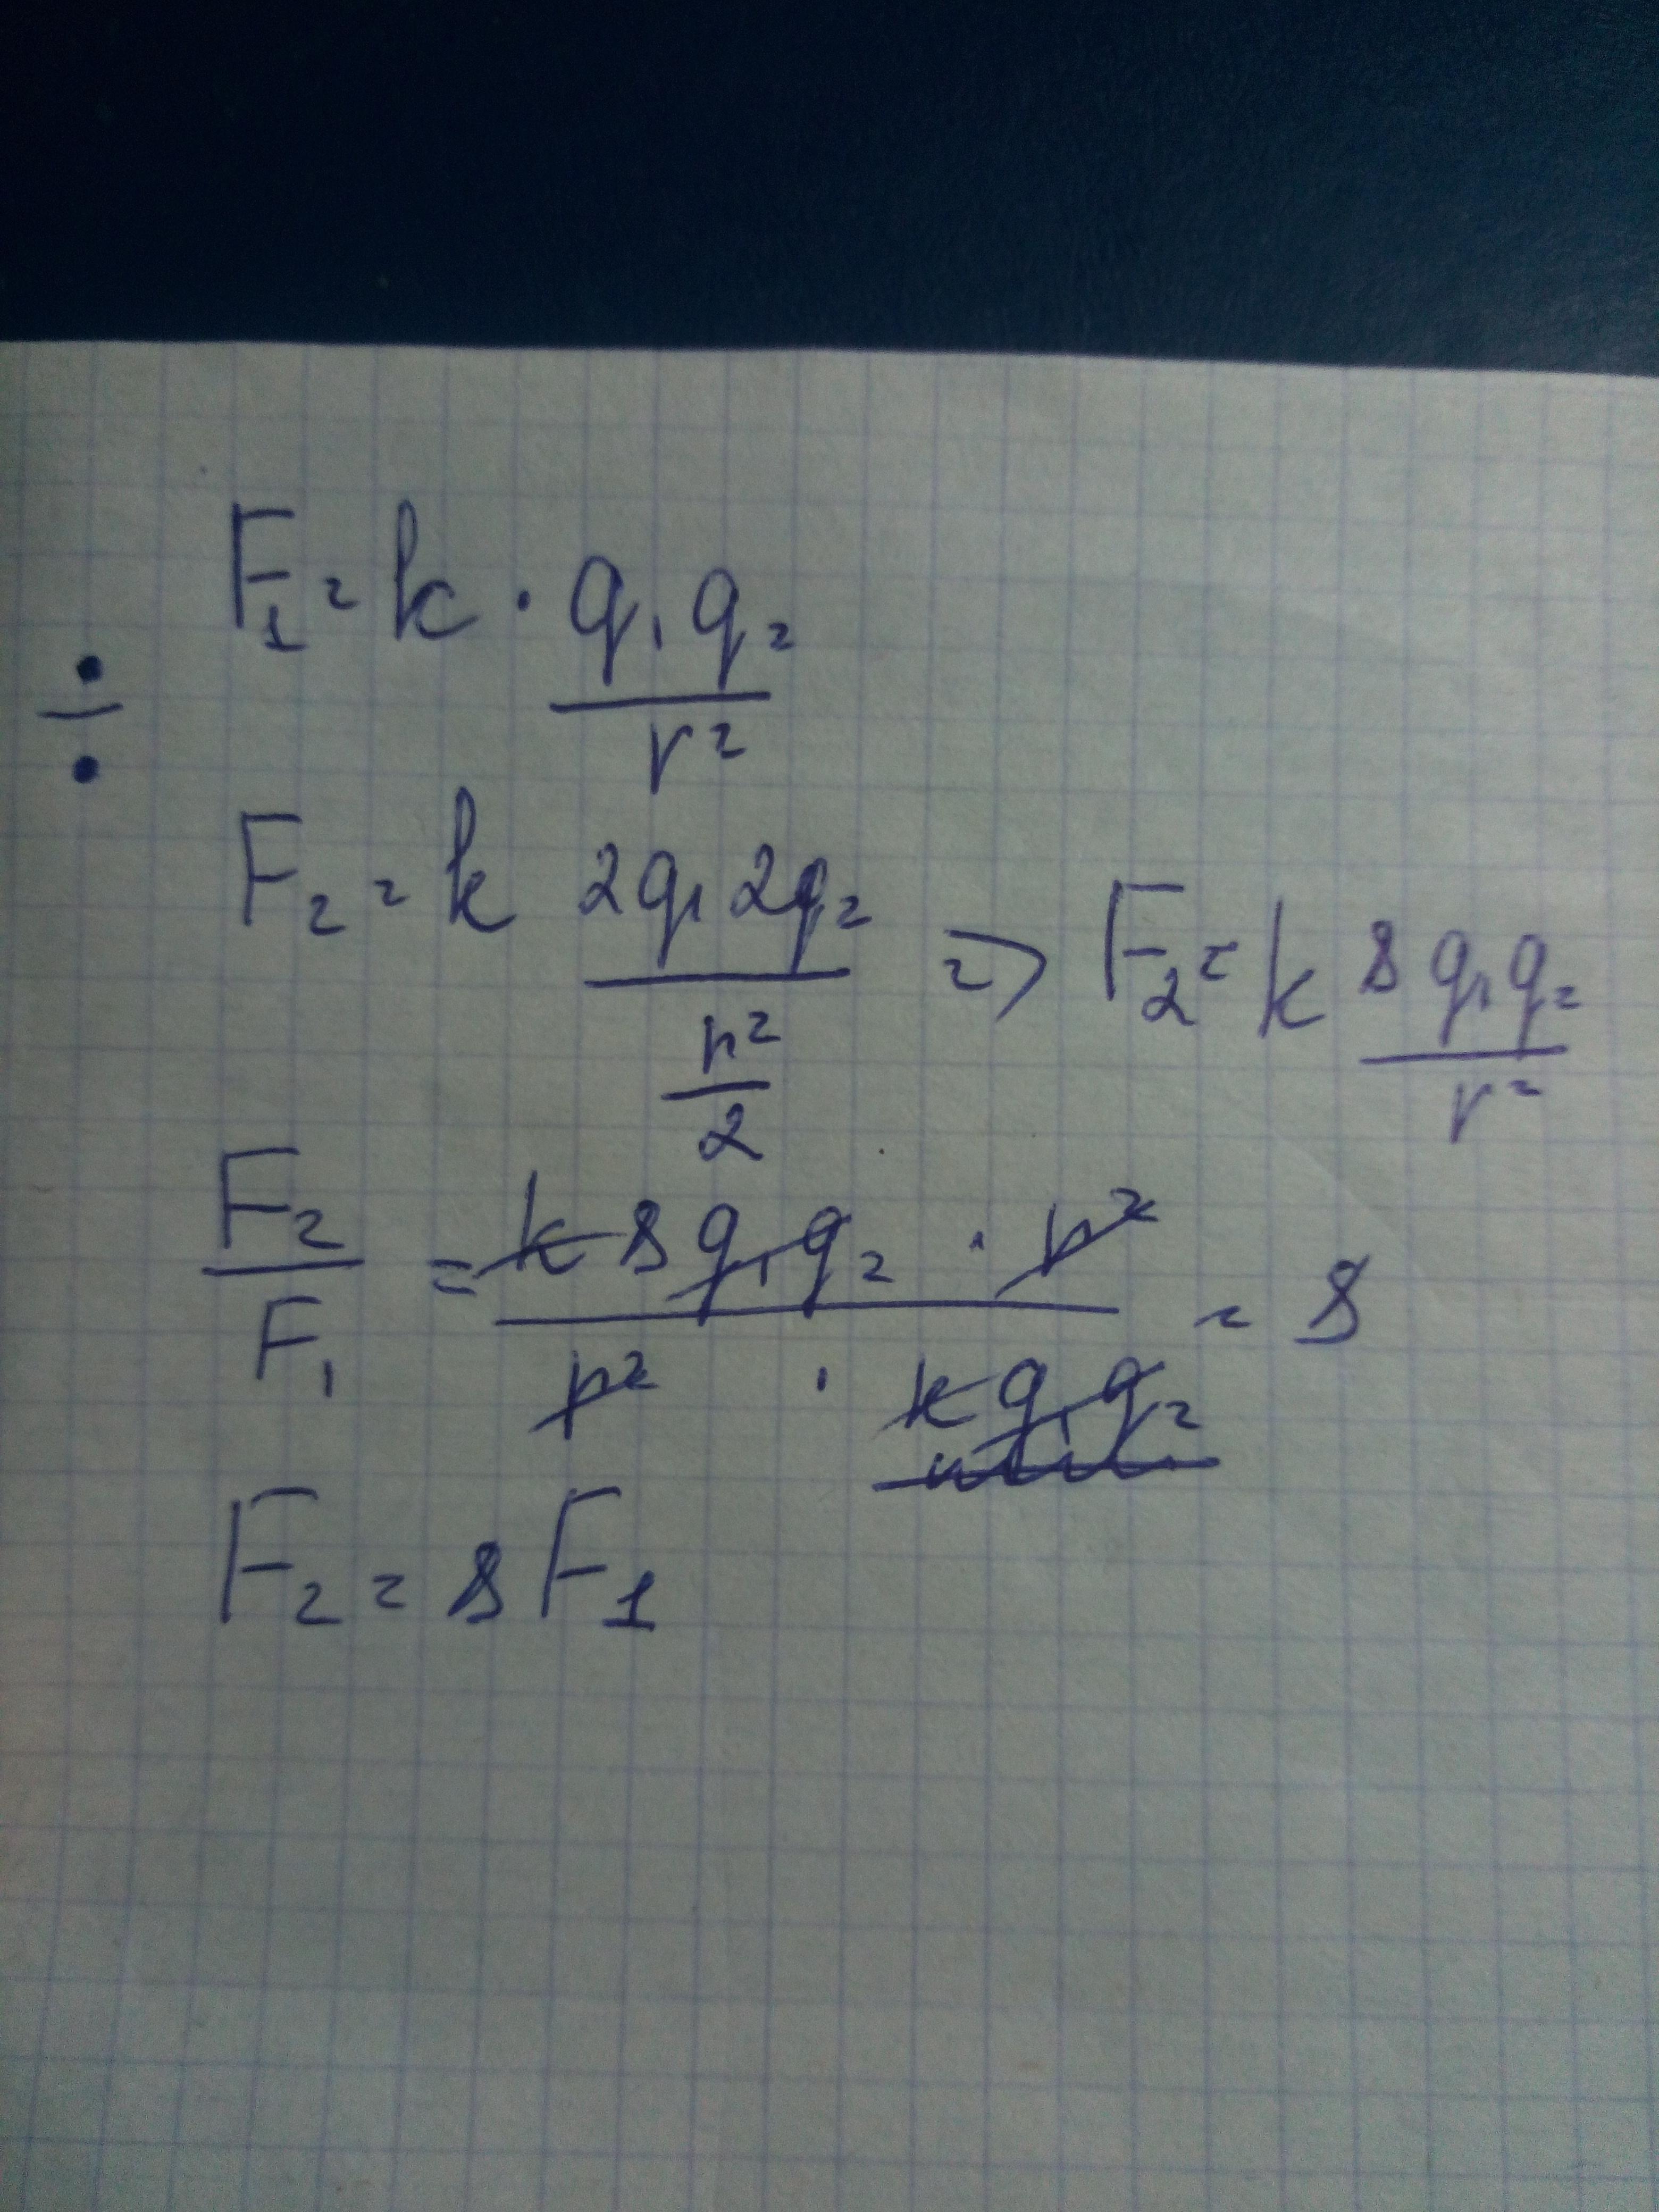 F₁ = k · q₁q₂ / r²
÷
F₂ = k 2q₁2q₂ / (r²/2) => F₂ = k 8q₁q₂ / r²
F₂/F₁ = k8q₁q₂ · r² / r² · kq₁q₂ = 8
F₂ = 8F₁